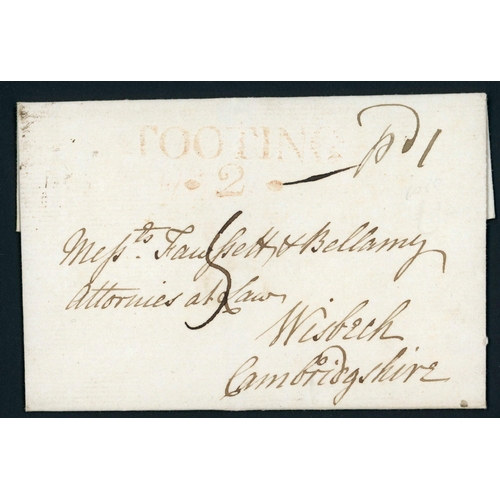 TOOTING
·2·
pd 1
Messrs Faussett & Bellamy
5
Attornies at Law
Wisbech
Cambridgshire